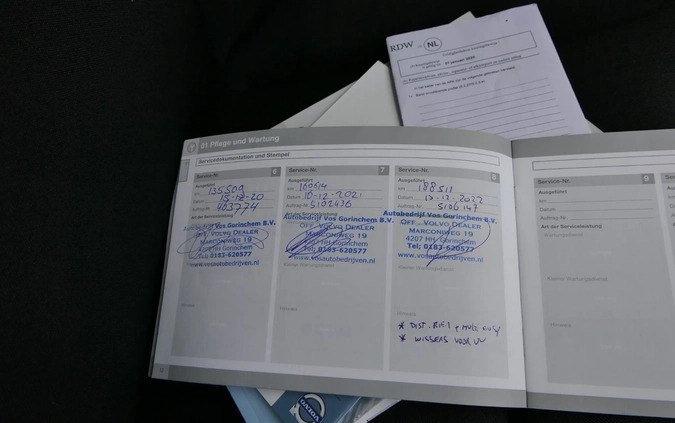 RDW
NL
01 Pflege und Wartung
Servicedokumentation und Stempel
Service-Nr. 6
Ausgeführt
km 135509
Datum 15-12-20
Auftrag-Nr.
Art der Serviceleistung
Autobedrijf Vos Gorinchem B.V.
OFF. VOLVO DEALER
MARCONIWEG 19
4207 HH Gorinchem
Tel; 0183-620577
www.vosautobedrijven.nl
Hinweis
Service-Nr. 7
Ausgeführt
km 160614
Datum 10-12-2021
Auftrag-Nr. 5102436
Art der Serviceleistung
Autobedrijf Vos Gorinchem B.V.
OFF. VOLVO DEALER
MARCONIWEG 19
4207 HH Gorinchem
Tel; 0183-620577
www.vosautobedrijven.nl
Kleiner Wartungsdienst
Hinweis
Service-Nr. 8
Ausgeführt
km 188511
Datum 13-12-2022
Auftrag-Nr. 5106147
Autobedrijf Vos Gorinchem B.V.
OFF. VOLVO DEALER
MARCONIWEG 19
4207 HH Gorinchem
Tel; 0183-620577
www.vosautobedrijven.nl
Kleiner Wartungsdienst
Hinweis
* DIST. RIEM + MULTI
* WISSERS VOOR
Service-Nr. 9
Ausgeführt
km
Datum
Auftrag-Nr.
Art der Serviceleistung
Wartungsdienst
Kleiner Wartungsdienst
Hinweis
12
VOLVO